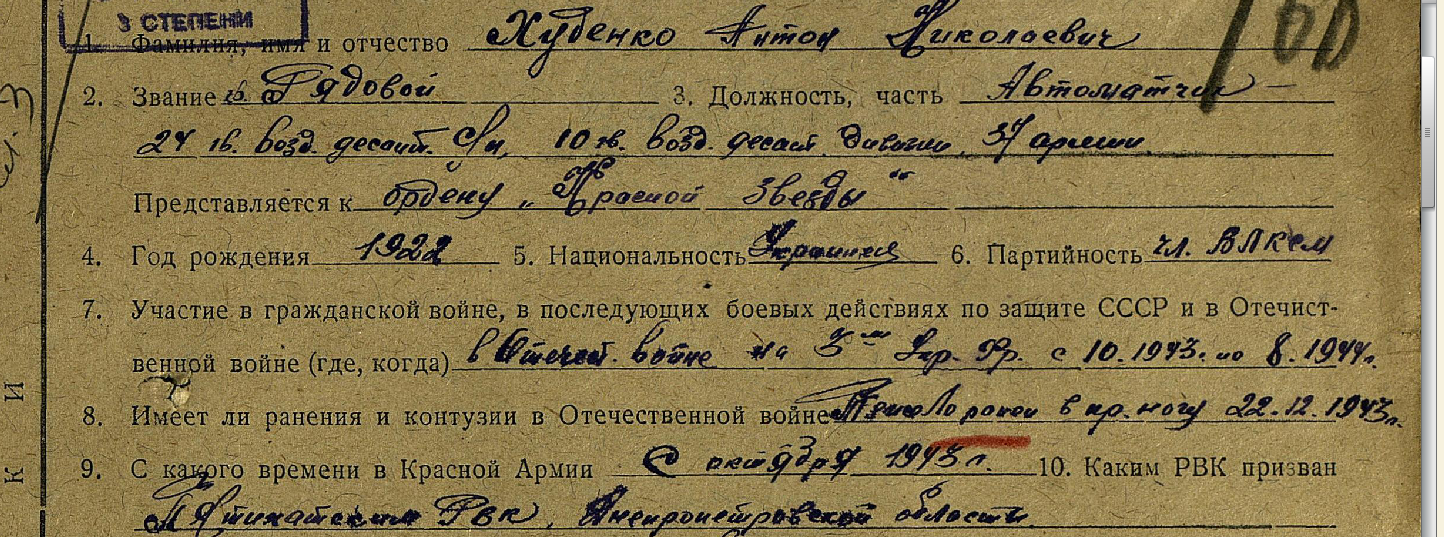 3 СТЕПЕНИ
1. Фамилия, имя и отчество Худенко Антон Николаевич
2. Звание гв. Рядовой 3. Должность, часть Автоматчик
24 гв. возд. десант. с/п, 10 гв. возд. десант. дивизии, 37 армии
Представляется к ордену „Красной Звезды“
4. Год рождения 1922 5. Национальность Украинец 6. Партийность чл. ВЛКСМ
7. Участие в гражданской войне, в последующих боевых действиях по защите СССР и в Отечест-
венной войне (где, когда) в Отечест. войне на 3ем Укр. Фр. с 10.1943. по 8.1944г.
8. Имеет ли ранения и контузии в Отечественной войне Тяжело ранен в пр. ногу 22.12.1943г.
9. С какого времени в Красной Армии С октября 1943г. 10. Каким РВК призван
Пятихатским Рвк, Днепропетровской области
К И